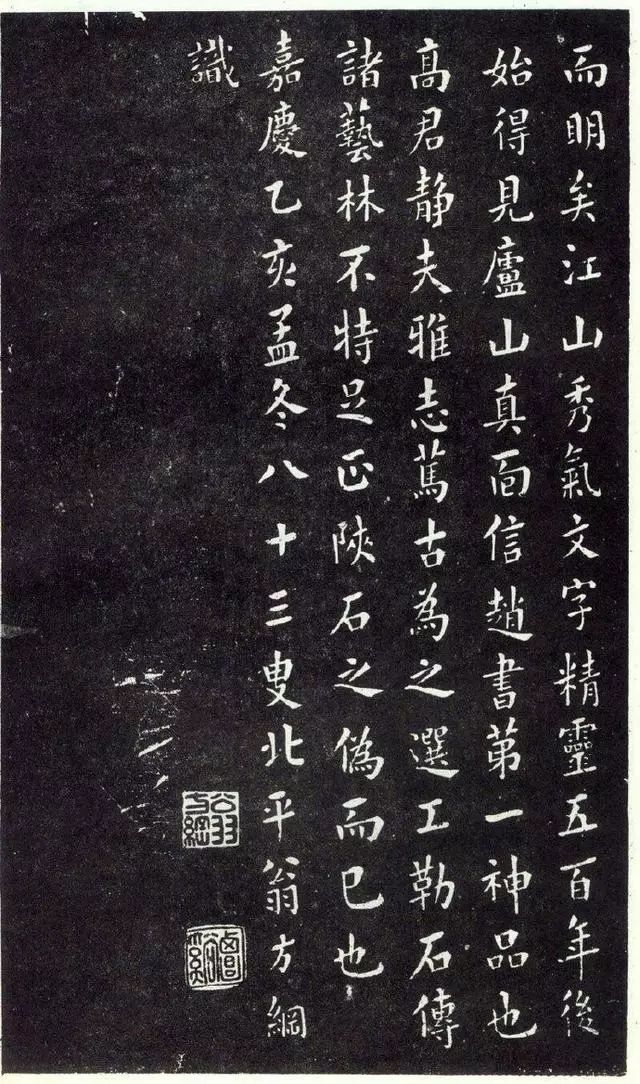 而明矣江山秀氣文字精靈五百年後
始得見廬山真面信趙書第一神品也
高君靜夫雅志篤古為之選工勒石傳
諸藝林不特足正陝石之偽而已也
嘉慶乙亥孟冬八十三叟北平翁方綱
識
翁方綱